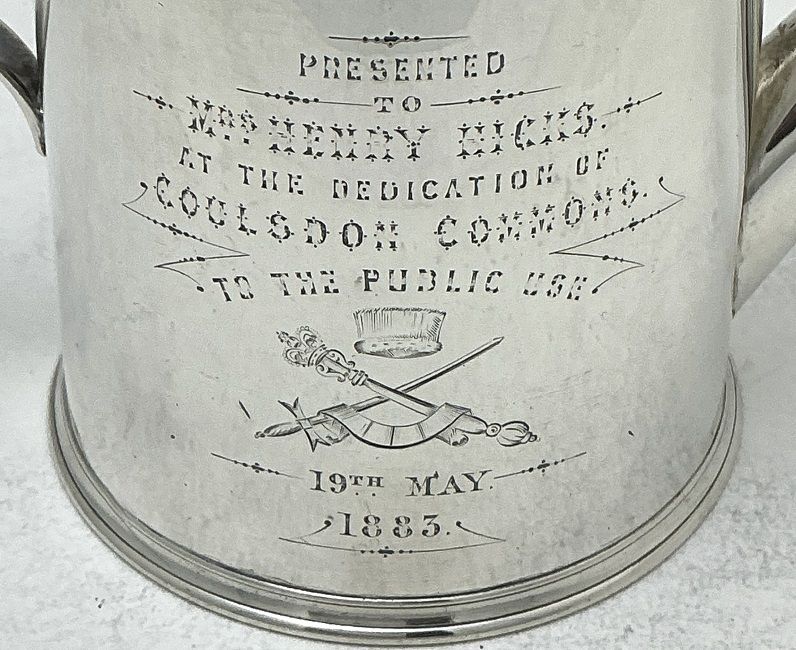 PRESENTED
TO
MRS HENRY HICKS.
AT THE DEDICATION OF
COULSDON COMMONS.
TO THE PUBLIC USE
19TH MAY.
1883.